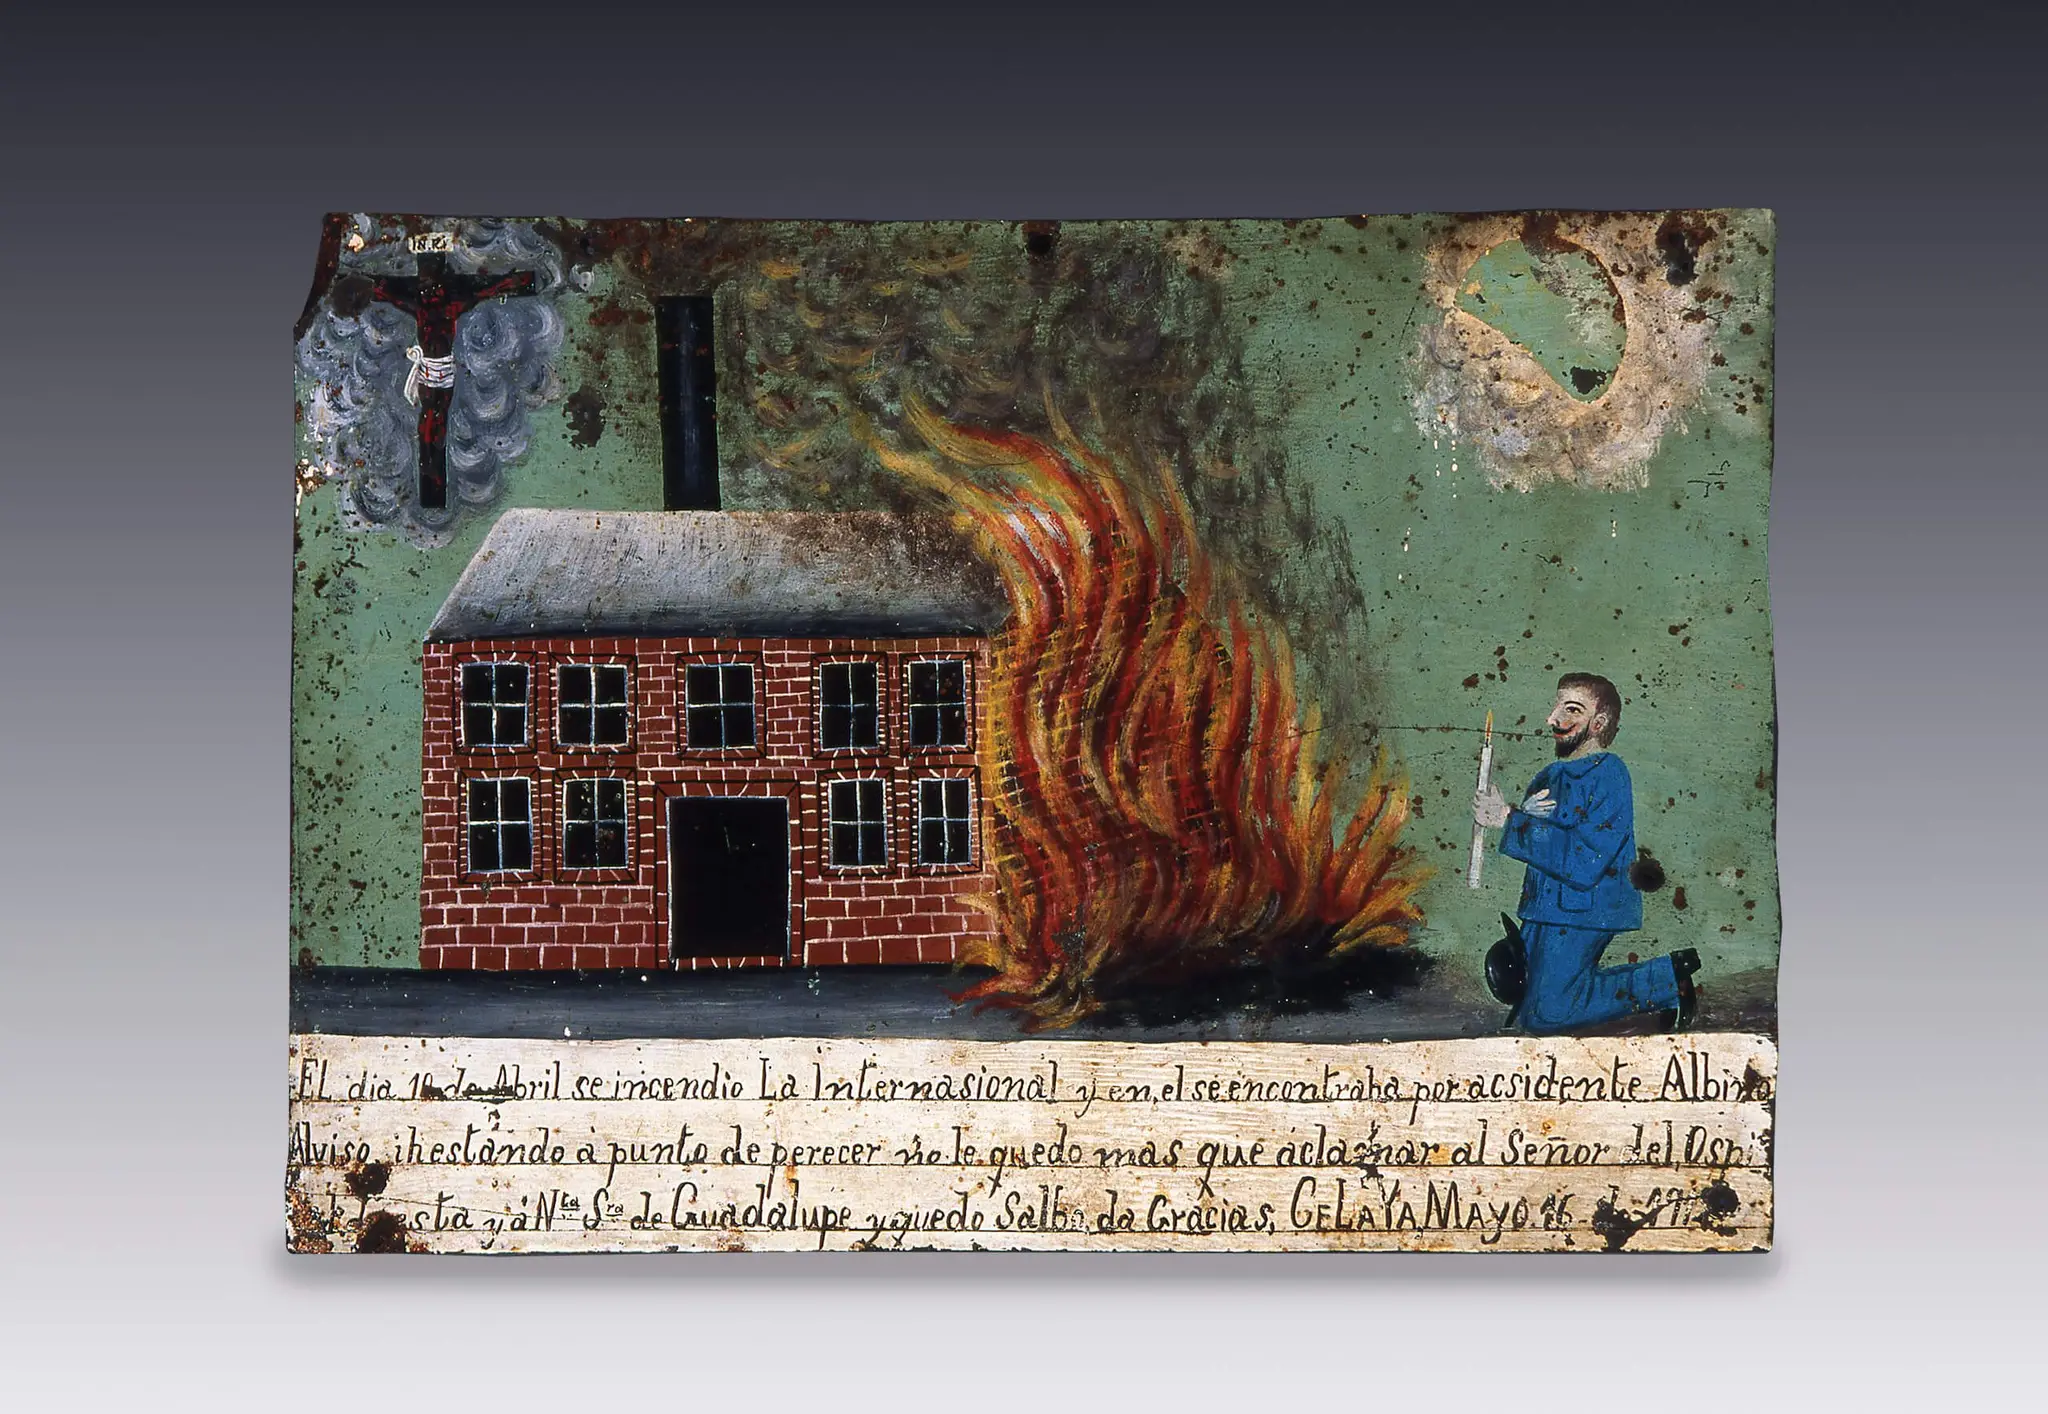 INRI
EL dia 10 de Abril se incendio La Internasional y en, el se encontraba por acsidente Albino
Alviso, ihestando à punto de perecer no le quedo mas que aclamar al Señor del, Ospi
esta y à Nta Sra de Guadalupe y quedo Salbo, da Gracias, CELAYA, MAYO. 16